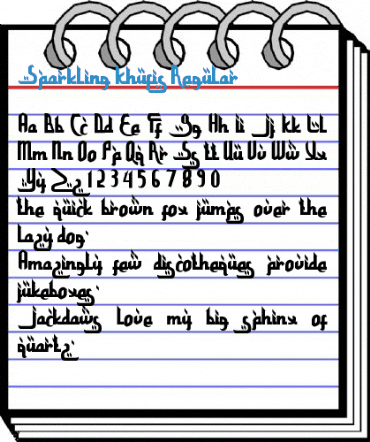 Sparkling Khufis Regular
Aa Bb Cc Dd Ee Ff Gg Hh Ii Jj Kk Ll
Mm Nn Oo Pp Qq Rr Ss Tt Uu Vv Ww Xx
Yy Zz 1 2 3 4 5 6 7 8 9 0
the quick brown fox jumps over the
lazy dog.
Amazingly few discotheques provide
jukeboxes.
Jackdaws love my big sphinx of
quartz.